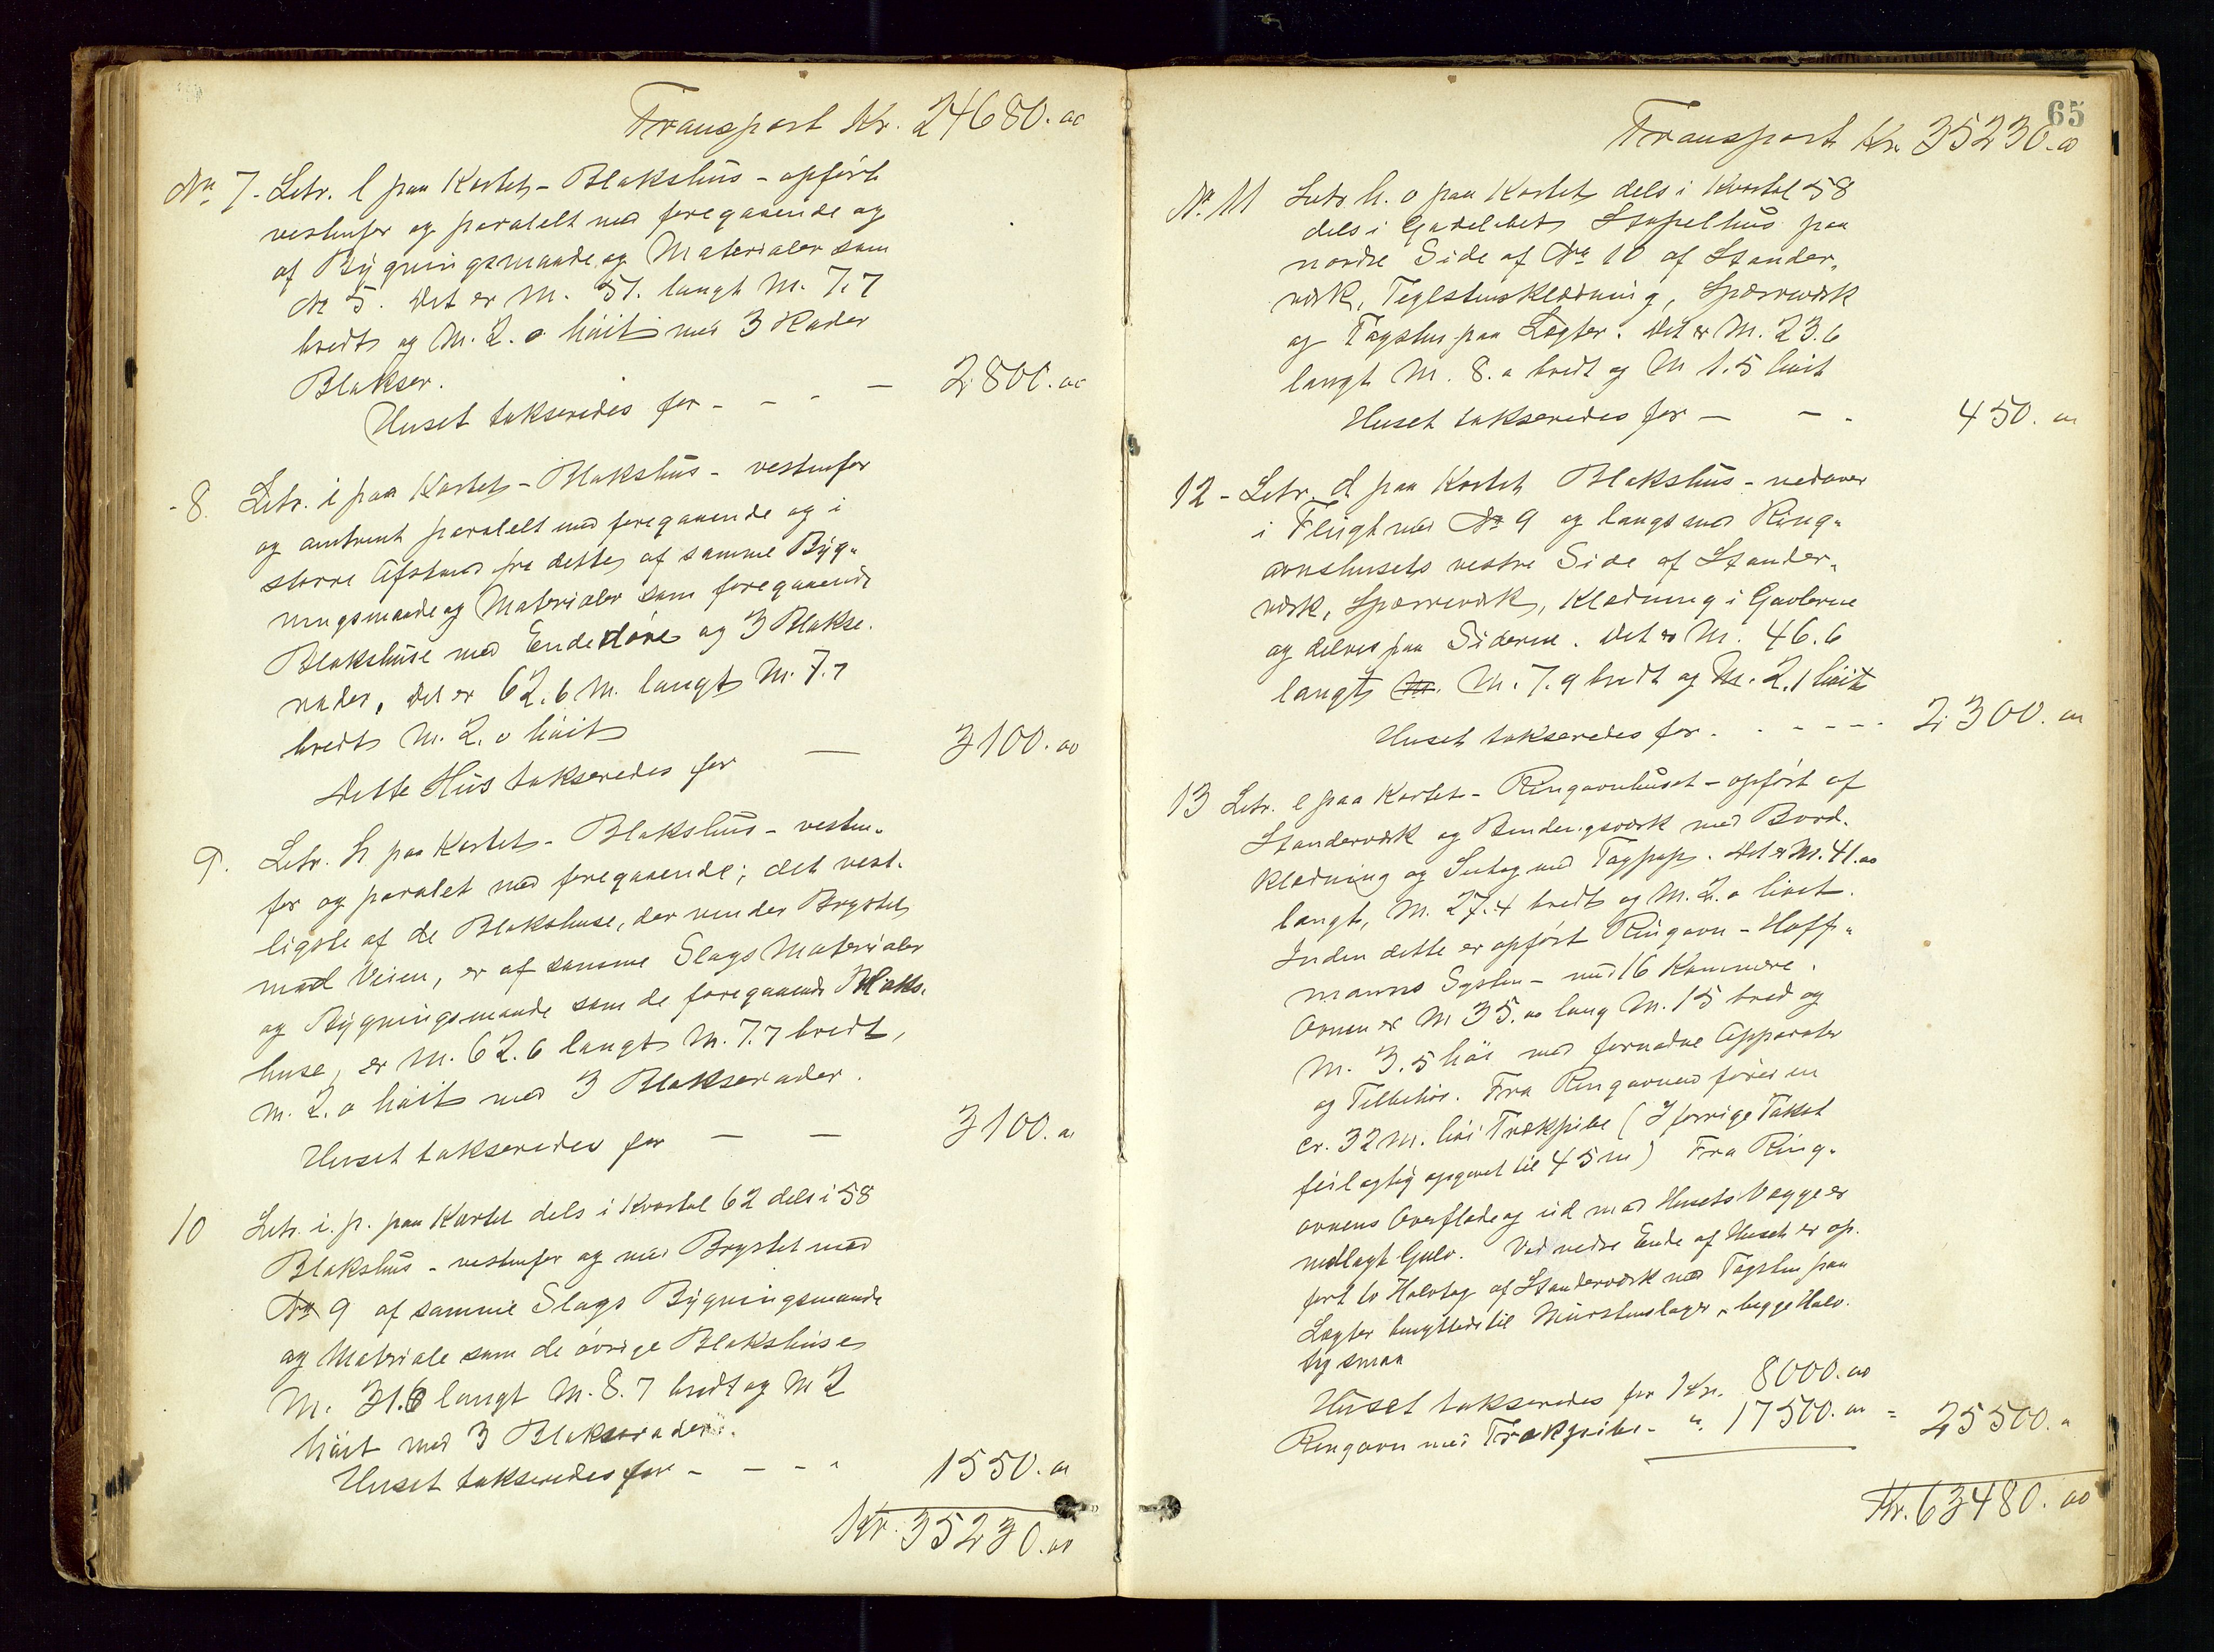 Transport Kr. 24680.00
No 7. Litr. l paa Kartet - Blakshus - opført
vestenfor og paralelt med foregaaende og
af Bygningsmaade og Materialer som
No 5. Det er M. 51. langt M. 7.7
bredt og M. 2.0 høit med 3 Rader
Blakser.
Huset takseredes for - - - — 2800.00
- 8. Litr. i paa Kartet - Blakshus - vestenfor
og omtrent paralelt med foregaaende og i
større Afstand fra dette, af samme Byg-
ningsmaade og Materialer som foregaaende
Blakshuse med Endedøre og 3 Blakse-
rader. Det er 62.6 M. langt M. 7.7
bredt M. 2.0 høit
Dette Hus takseredes for — 3100.00
9. Litr. h paa Kartet - Blakshus - vesten-
for og paralet med foregaaende; det vest-
ligste af de Blakshuse, der vender Brystet
mod Veien, er af samme Slags Materialer
og Bygningsmaade som de foregaaende Blaks-
huse, er M. 62.6 langt M. 7.7 bredt,
M. 2.0 høit med 3 Blakserader.
Huset takseredes for — — 3100.00
10 Litr. i. p. paa Kartet dels i Kvartal 62 dels i 58
Blakshus - vestenfor og med Brystet mod
No 9 af samme Slags Bygningsmaade
og Materiale som de øvrige Blakshuse
M. 31.6 langt M. 8.7 bredt og M 2
høit med 3 Blakserader.
Huset takseredes for - - - - 1550.00
Kr. 35230.00
65
Transport Kr. 35230.00
No. 11 Litr. h. o paa Kartet dels i Kvartal 58
dels i Gadeløbet Stapelhus paa
nordre Side af No 10 af Stander-
værk, Teglstensklædning, Spærreværk
og Tagsten paa Lægter. Det er M. 23.6
langt M. 8.0 bredt og M 1.5 høit
Huset takseredes for — - - 450.00
12 - Litr. d paa Kartet Blakshus - nedover
i Flugt med No 9 og langs med Ring-
ovnshusets vestre Side af Stander-
værk, Spærreværk, Klædning i Gavlerne
og delvis paa Siderne. Det er M. 46.6
langt M. M. 7.9 bredt og M. 2.1 høit
Huset takseredes for. - - - - - 2300.00
13 Litr. e paa Kartet - Ringovnhuset - opført af
Standerværk og Bindingsværk med Bord-
klædning og Sutag med Tagpap. Det er M. 41.00
langt, M. 27.4 bredt og M. 2.0 høit.
Inden dette er opført Ringovn - Hoff-
manns System - med 16 Kammere.
Ovnen er M 35.00 lang M. 15 bred og
M. 3.5 høi med fornødne Apparater
og Tilbehør. Fra Ringovnen fører en
cr. 32 M. høi Trækpibe (I forrige Takst
feilagtig opgivet til 45 m) Fra Ring-
ovnens Overflade og ud mod Husets Vægge er
nedlagt Gulv. Ved nedre Ende af Huset er op-
ført to Halvtag af Standerværk med Tagsten paa
Lægter benyttede til Murstenslager, begge Halv-
tag smaa
Huset takseredes for Kr. 8000.00
Ringovn med Trækpibe - " 17500.00 = 25500.00
Kr. 63480.00